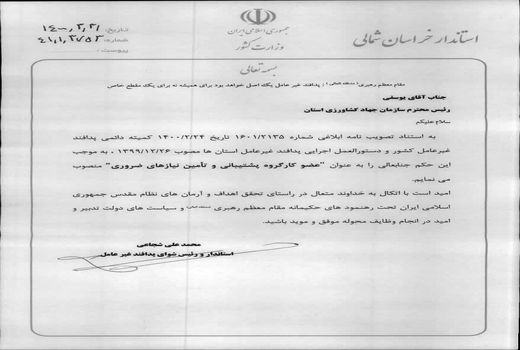 جمهوری اسلامی ایران
وزارت کشور
استاندار خراسان شمالی
تاریخ:
شماره:
پیوست:
بسمه تعالی
مقام معظم رهبری: پدافند غیر عامل یک اصل خواهد بود برای همیشه نه برای یک مقطع خاص
جناب آقای یوسفی
رئیس محترم سازمان جهاد کشاورزی استان
سلام علیکم
به استناد تصویب نامه ابلاغی شماره ۱۶۰۱/۲۱۳۵ تاریخ ۱۴۰۰/۲/۲۴ کمیته دائمی پدافند
غیرعامل کشور و دستورالعمل اجرایی پدافند غیرعامل استان ها مصوب ۱۳۹۹/۱۲/۲۶ ، به موجب
این حکم جنابعالی را به عنوان "عضو کارگروه پشتیبانی و تأمین نیازهای ضروری" منصوب
می نمایم.
امید است با اتکال به خداوند متعال در راستای تحقق اهداف و آرمان های نظام مقدس جمهوری
اسلامی ایران تحت رهنمود های حکیمانه مقام معظم رهبری و سیاست های دولت تدبیر و
امید در انجام وظایف محوله موفق و موید باشید.
محمد علی شجاعی
استاندار و رئیس شوای پدافند غیر عامل